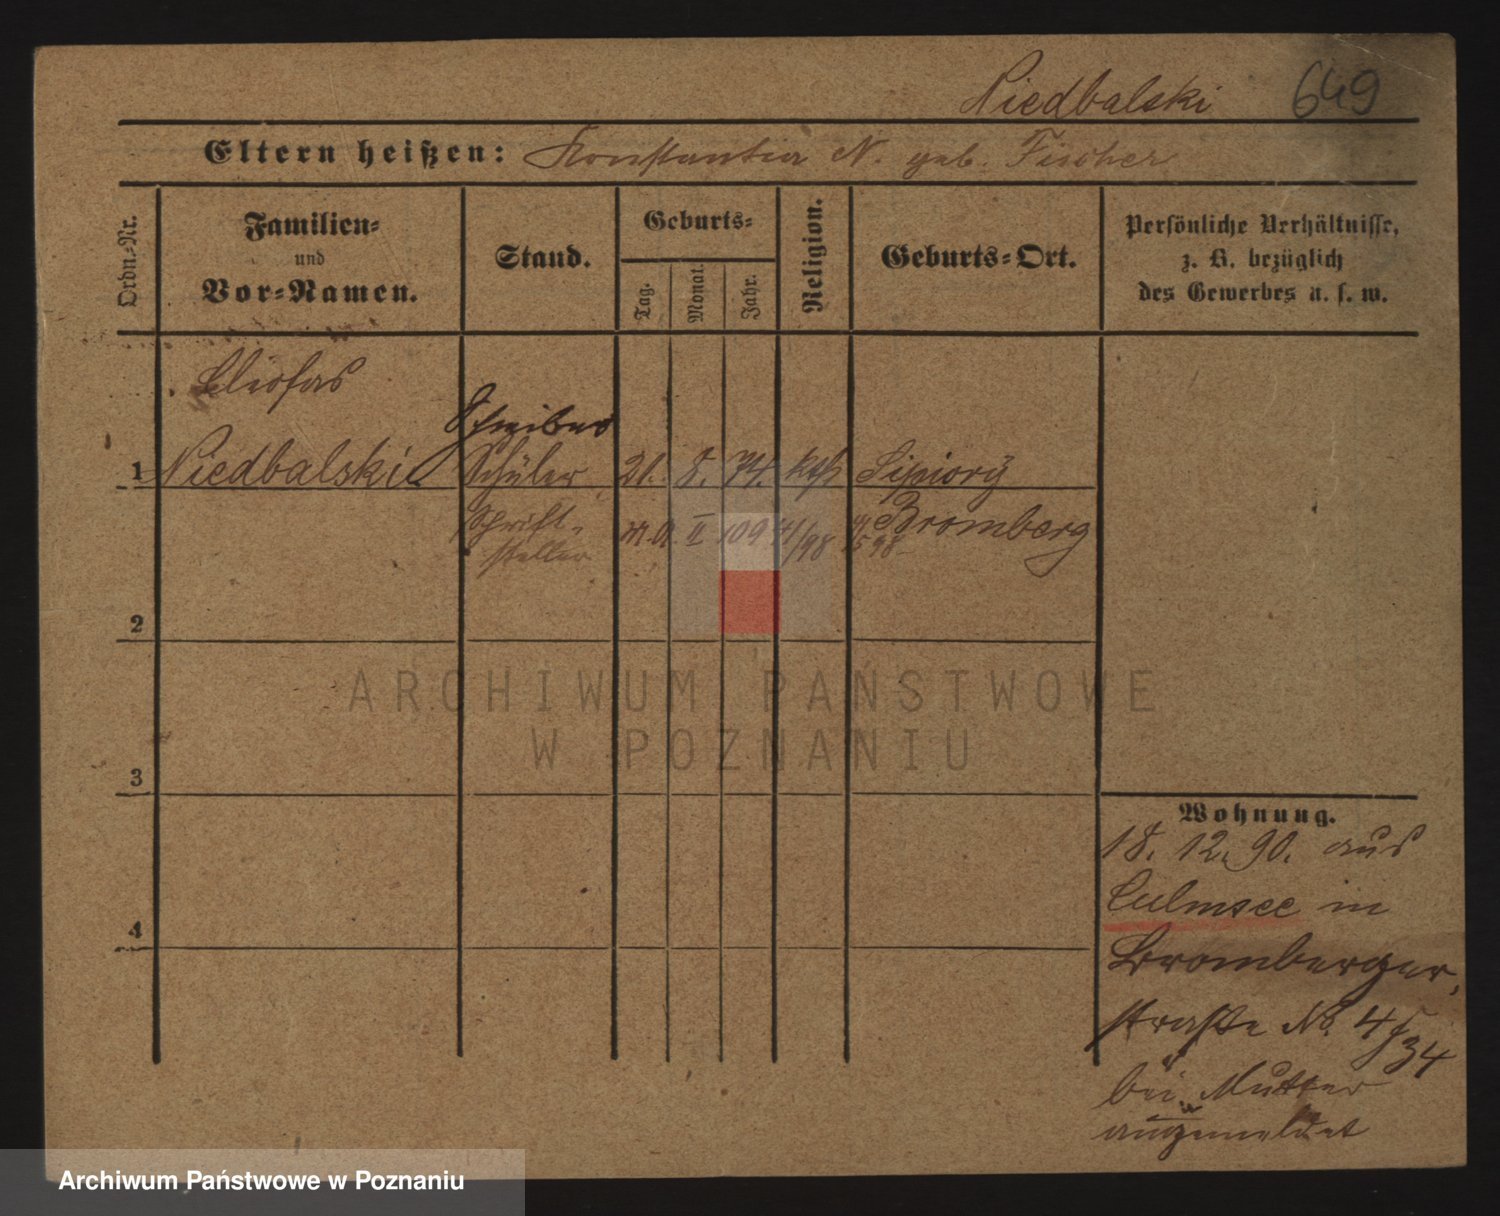 Niedbalski 649
Eltern heißen: Konstantia N. geb. Fischer
Ordn.-Nr.
Familien-
und
Vor-Namen.
Stand.
Geburts-
Tag.
Monat.
Jahr.
Religion.
Geburts-Ort.
Persönliche Verhältnisse,
z. B. bezüglich
des Gewerbes u. s. w.
Cleofas
Schreiber
1 Niedbalski Schüler 21. 8. 74. kath Sipiory
Schrift- II 109 /98 Bromberg
steller
2
3
4
ARCHIWUM PAŃSTWOWE
W POZNANIU
Wohnung.
18. 12. 90. aus
Culmsee in
Bromberger
straße No. 4/34
bei Mutter
angemeldet
Archiwum Państwowe w Poznaniu